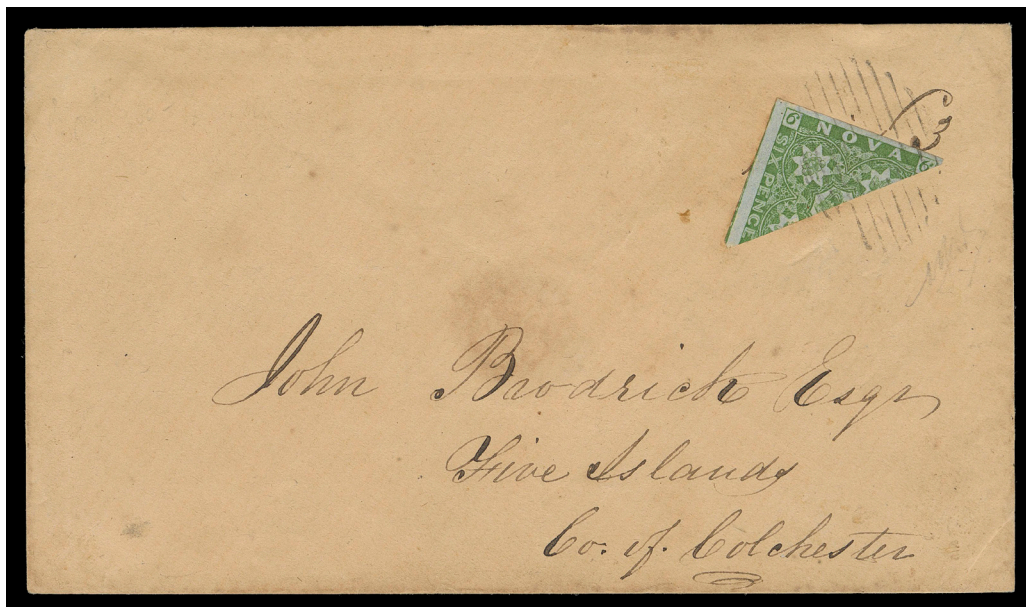 6 NOVA 6
SIX PENCE
3
John Brodrick Esqr
Five Islands
Co. of. Colchester